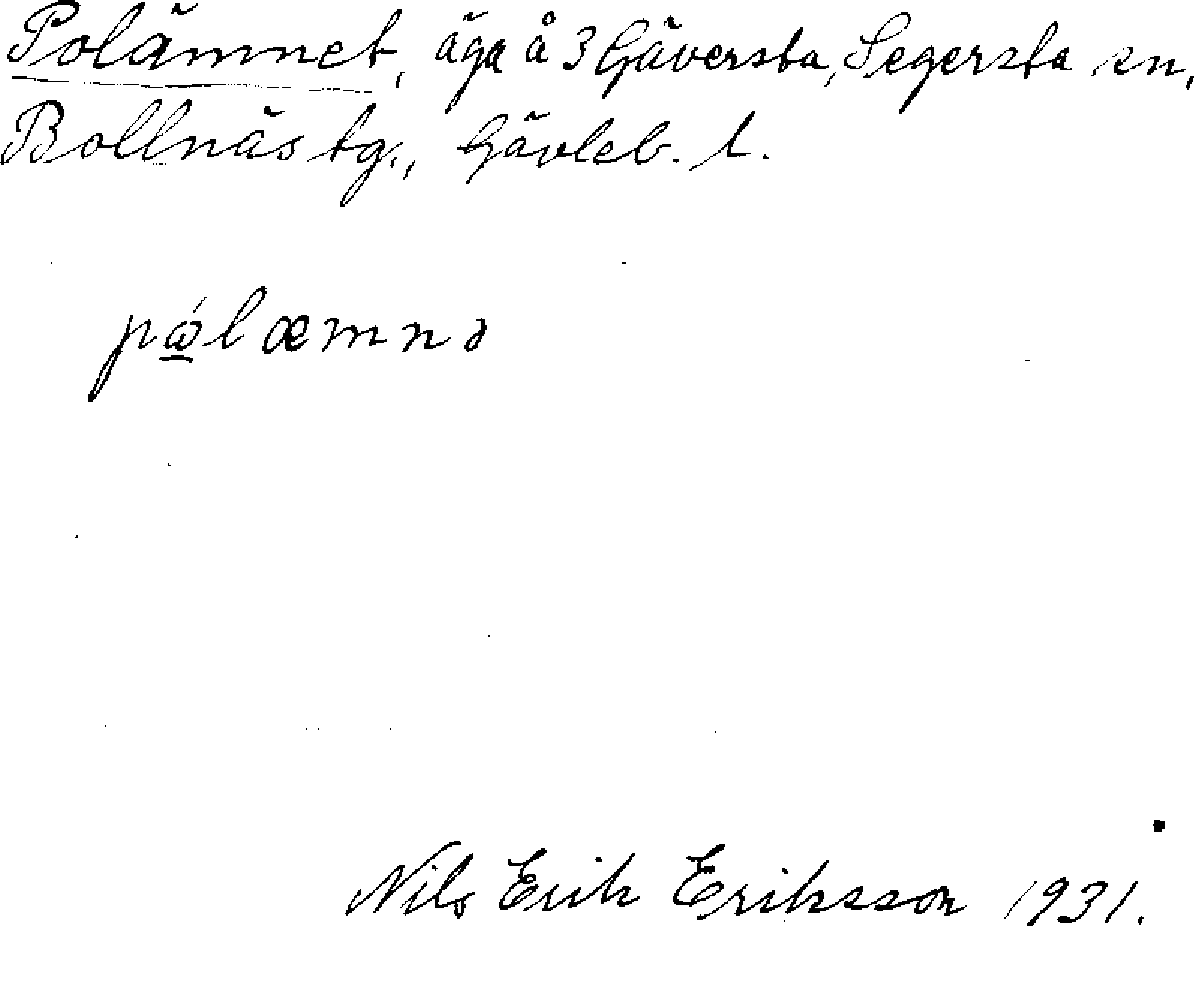 Polämnet, äga å 3 Gäversta, Segersta sn,
Bollnäs tg., Gävleb. l.
pώ̲læmnə
Nils Erik Eriksson 1931.